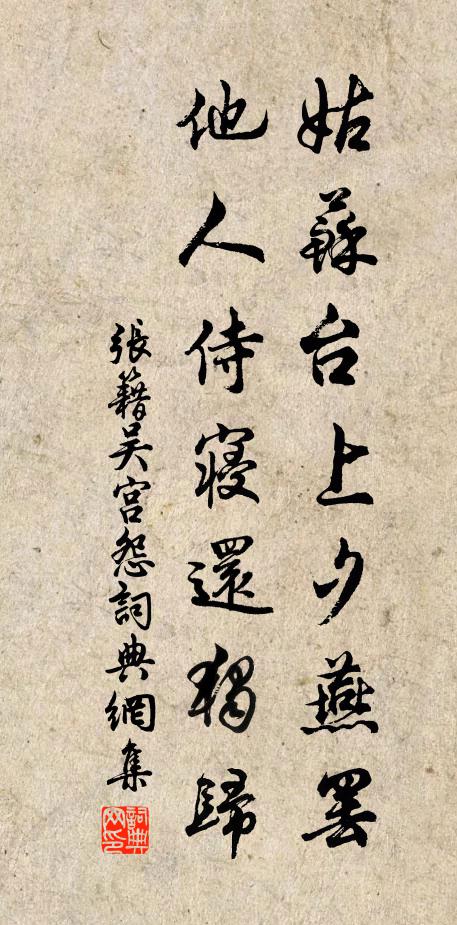 姑蘇台上夕燕罢
他人侍寝還獨歸
張籍吴宫怨詞典網集
詞典网印